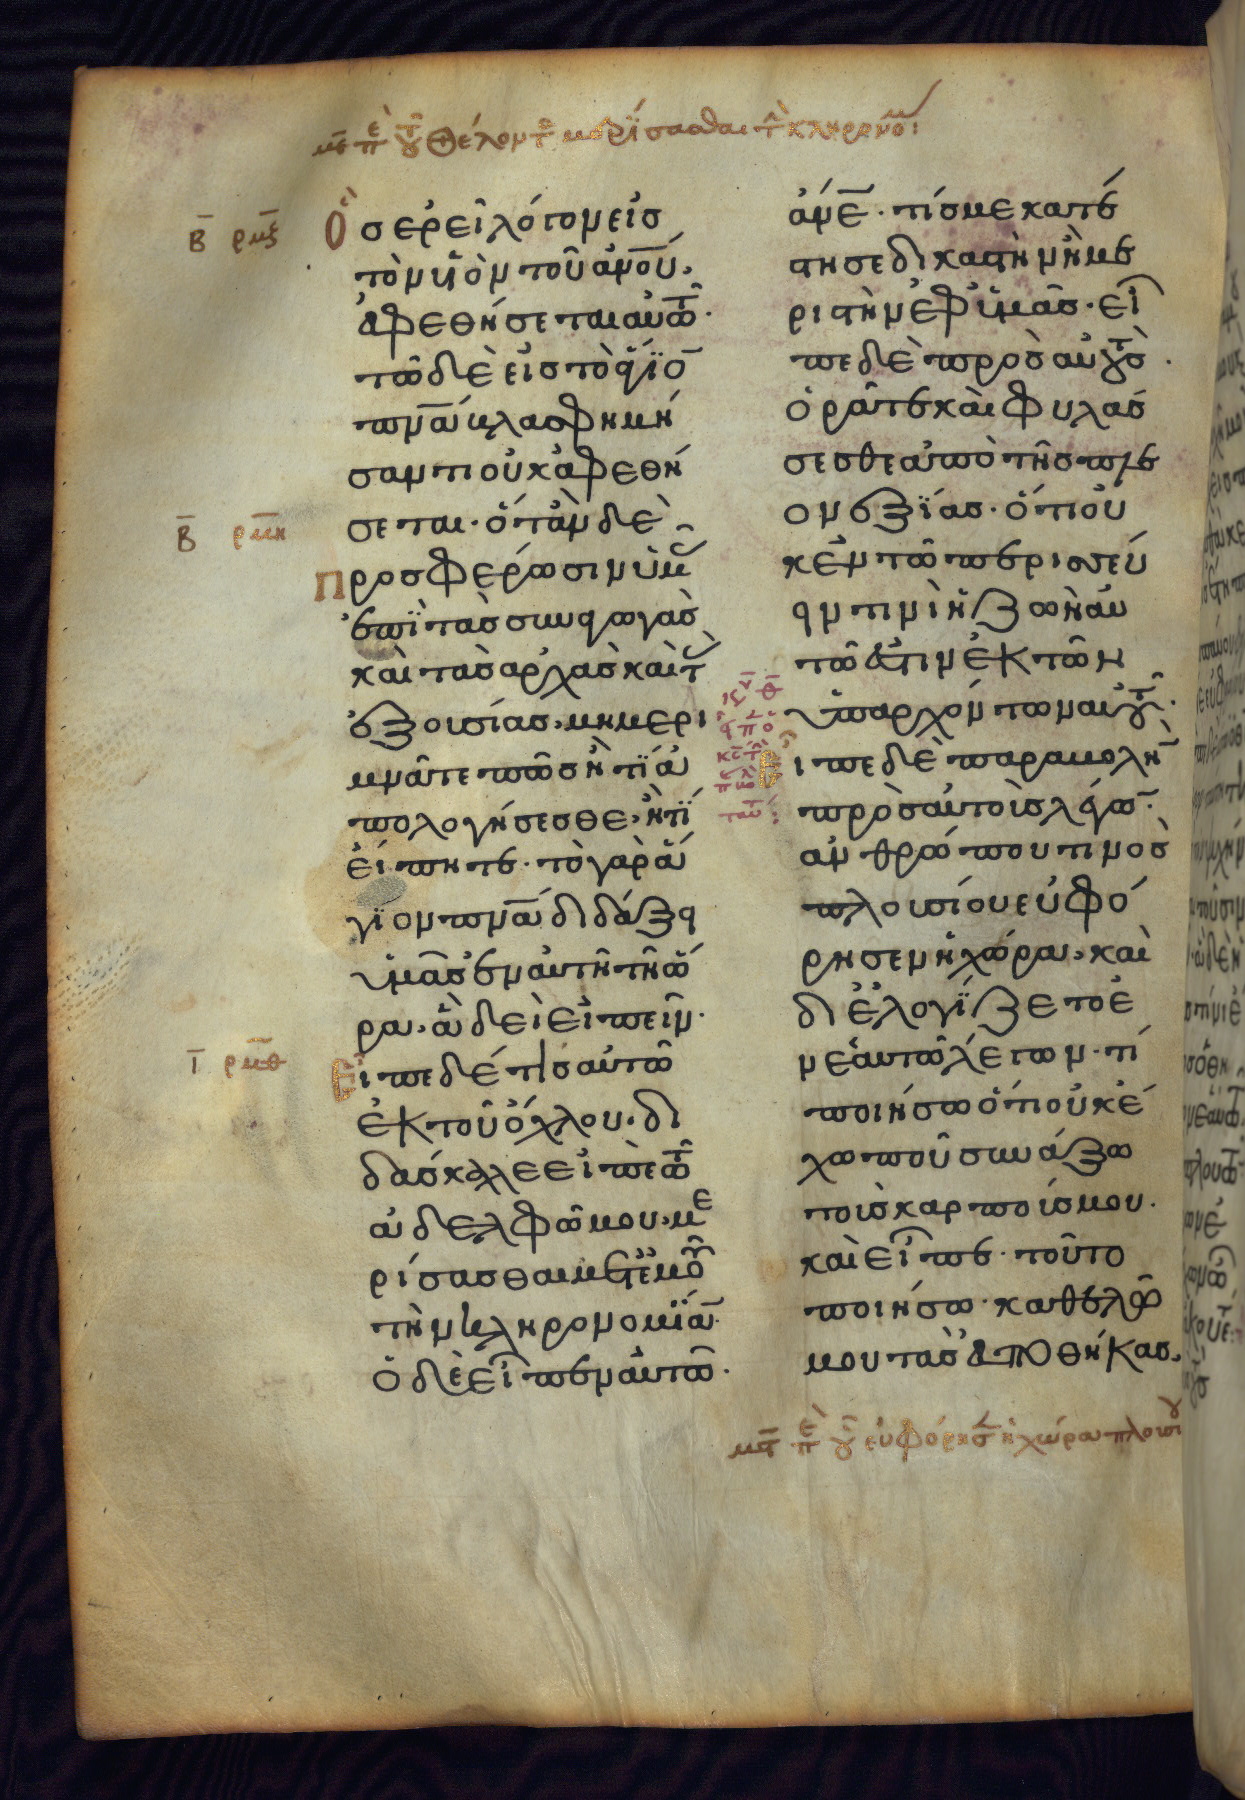 με περὶ τοῦ θέλοντος μερίσασθαι τὴν κληρονο
Ὃς ἐρεῖ λόγον εἰς
τὸν υἱὸν τοῦ ἀνου,
ἀφεθήσεται αὐτῶ·
τῶ δὲ εἰς τὸ ἅγϊο
πνα βλασφημή
σαντι οὐκ ἀφεθή
σεται· ὅταν δὲ
προσφέρωσιν ὑμᾶς
ἐπῒ τὰς συναγωγὰς
καὶ τὰς ἀρχὰς καὶ τὰς
ἐξουσίας, μὴ μερι
μνᾶτε πῶς ἢ τί ἀ
πολογήσεσθε, ἢ τί
εἴπητε· τὸ γὰρ ἅ
γϊον πνα διδάξει
ὑμᾶς ἐν αὐτῆ τῆ ὥ
ρα, ἃ δεῖ εἰπεῖν·
Εἶπε δέ τις αὐτῶ
ἐκ τοῦ ὄχλου· δι
δάσκαλε εἰπὲ τῶ
ἀδελφῶ μου, με
ρίσασθαι μετ' ἐμοῦ
τὴν κληρονομίαν·
ὁ δὲ εἶπεν αὐτῶ·
ἀνε· τίς με κατέ
στησε δικαστὴν ἢ με
ριστὴν ἐφ' ὑμᾶς· εἶ
πε δὲ πρὸς αὐτούς·
ὁρᾶτε καὶ φυλάσ
σεσθε ἀπὸ τῆς πλε
ονεξίας· ὅτι οὐ
κ ἐν τῶ περισσεύ
ειν τινὶ ἡ ζωὴ αὐ
τῶ ἐστιν ἐκ τῶν
ὑπαρχόντων αὐτοῦ·
Εἶπε δὲ παραβολὴν
πρὸς αὐτοὺς λέγων·
ἀνθρώπου τινὸς
πλουσίου εὐφό
ρησεν ἡ χώρα, καὶ
διελογίζετο ἐ
ν ἑαυτῶ λέγων· τί
ποιήσω ὅτι οὐκ ἔ
χω ποῦ συνάξω
τοὺς καρπούς μου·
καὶ εἶπε· τοῦτο
ποιήσω· καθελῶ
μου τὰς ἀποθήκας,
μϛ περὶ τοῦ εὐφόρησεν ἡ χώρα πλουσίου
Β ρμζ
Β ρμη
Ι ρμθ